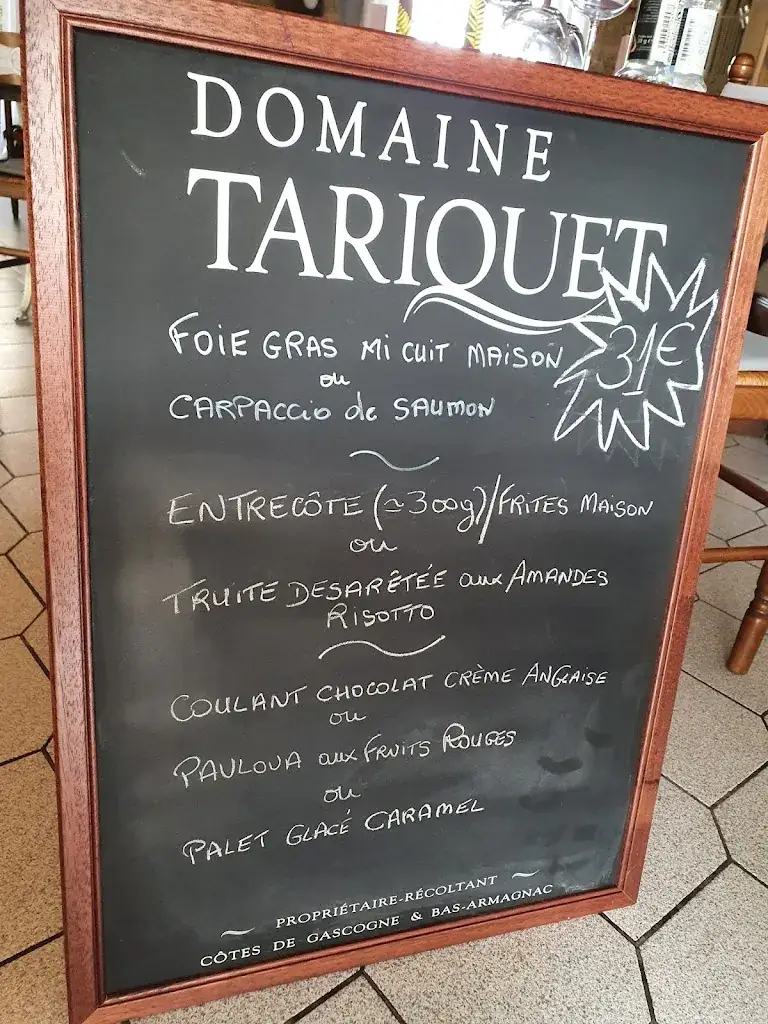 DOMAINE
TARIQUET
31€
FOIE GRAS Mi CUIT MAISON
ou
CARPACCIO de SAUMON
ENTRECÔTE (≃300g)/FRITES MAISON
ou
TRUITE DESARÊTÉE aux AMANDES
RISOTTO
COULANT CHOCOLAT CRÈME ANGLAISE
ou
PAVLOVA aux FRUITS ROUGES
ou
PALET GLACÉ CARAMEL
~ PROPRIÉTAIRE-RÉCOLTANT ~
CÔTES DE GASCOGNE & BAS-ARMAGNAC